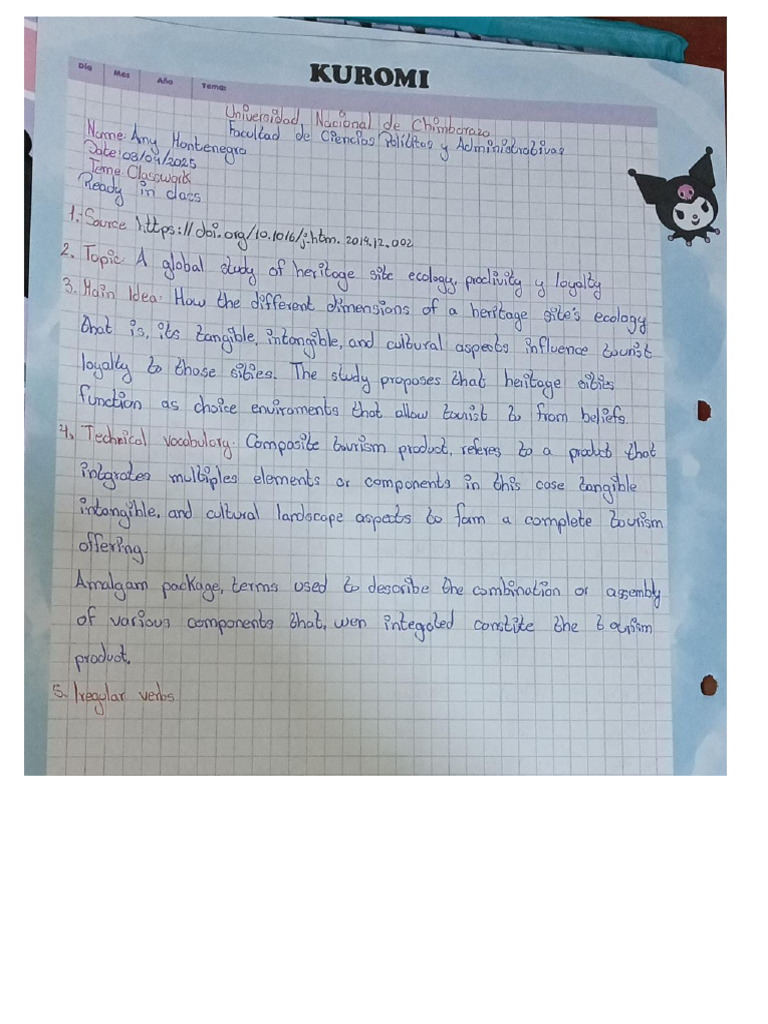 KUROMI
Día Mes Año Tema:
Universidad Nacional de Chimborazo
Facultad de Ciencias Políitas y Administrativas
Name: Amy Montenegro
Date: 03/04/2025
Teme: Classwork
Ready in class
1.- Source https://doi.org/10.1016/j.htm.2019.12.002
2. Topic: A global study of heritage site ecology, proclivity y loyalty
3. Main Idea: How the different dimensions of a heritage site's ecology
that is, its tangible, intangible, and cultural aspects influence tourist
loyalty to those sities. The study proposes that heritage sities
function as choice enviroments that allow tourist to from beliefs.
4. Technical vocabulary: Composite tourism product, referes to a product that
integrates multiples elements or components in this case tangible
intangible, and cultural landscape aspects to fom a complete tourism
offering.
Amalgam package, terms used to describe the combination or assembly
of various components that, wen integated constite the tourism
product.
5. Iregular verbs